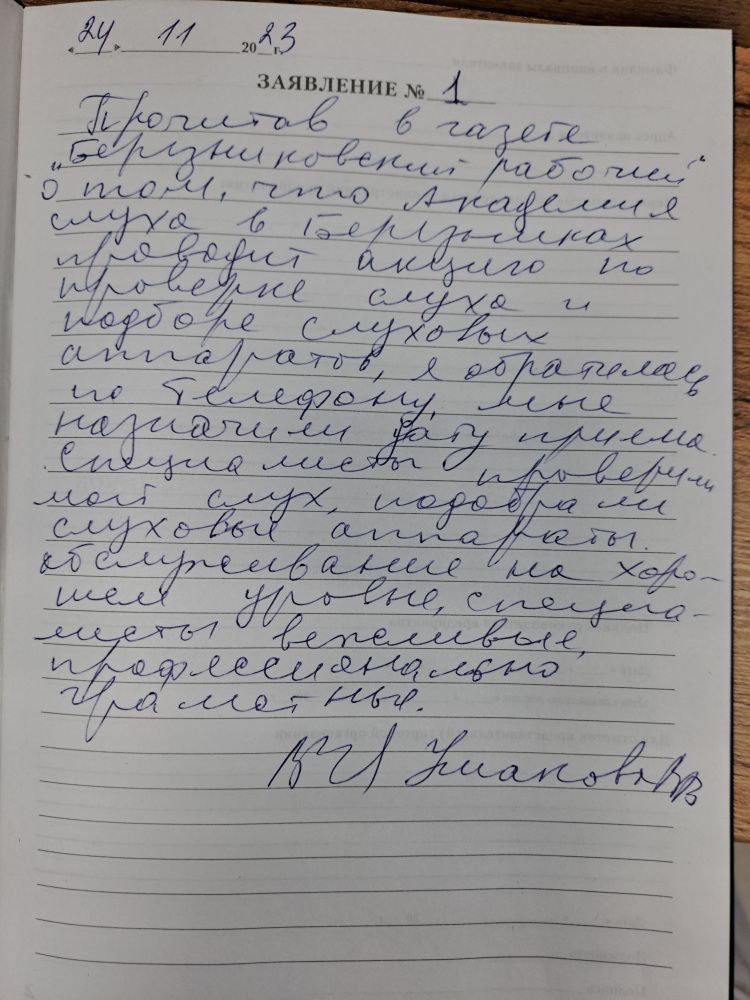 «24» 11 2023 г.
ЗАЯВЛЕНИЕ № 1
Прочитав в газете
„Березниковский рабочий"
о том, что Академия
слуха в Березниках
проводит акцию по
проверке слуха и
подборе слуховых
аппаратов, я обратилась
по телефону, мне
назначили дату приема.
Специалисты проверили
мой слух, подобрали
слуховые аппараты.
Обслуживание на хоро-
шем уровне, специа-
листы вежливые,
профессионально
грамотные.
Ушакова